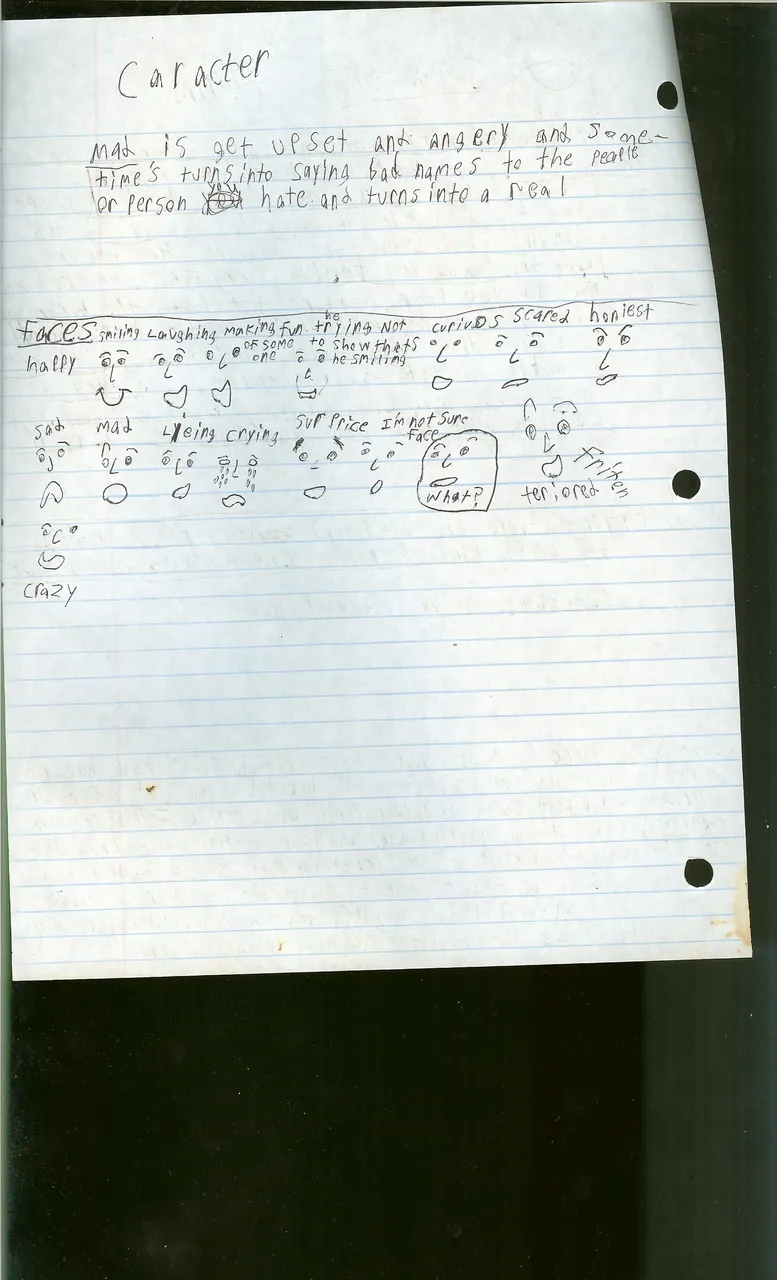 Caracter
Mad is get upset and angery and some-
time's turns into saying bad names to the people
or person hate and turns into a real
Faces smiling Laughing making fun he trying Not curiuos scared honiest
happy of some to show thats
one he smiling
sad mad Lyeing crying surprice I'm not sure
face
What? teriored
crazy